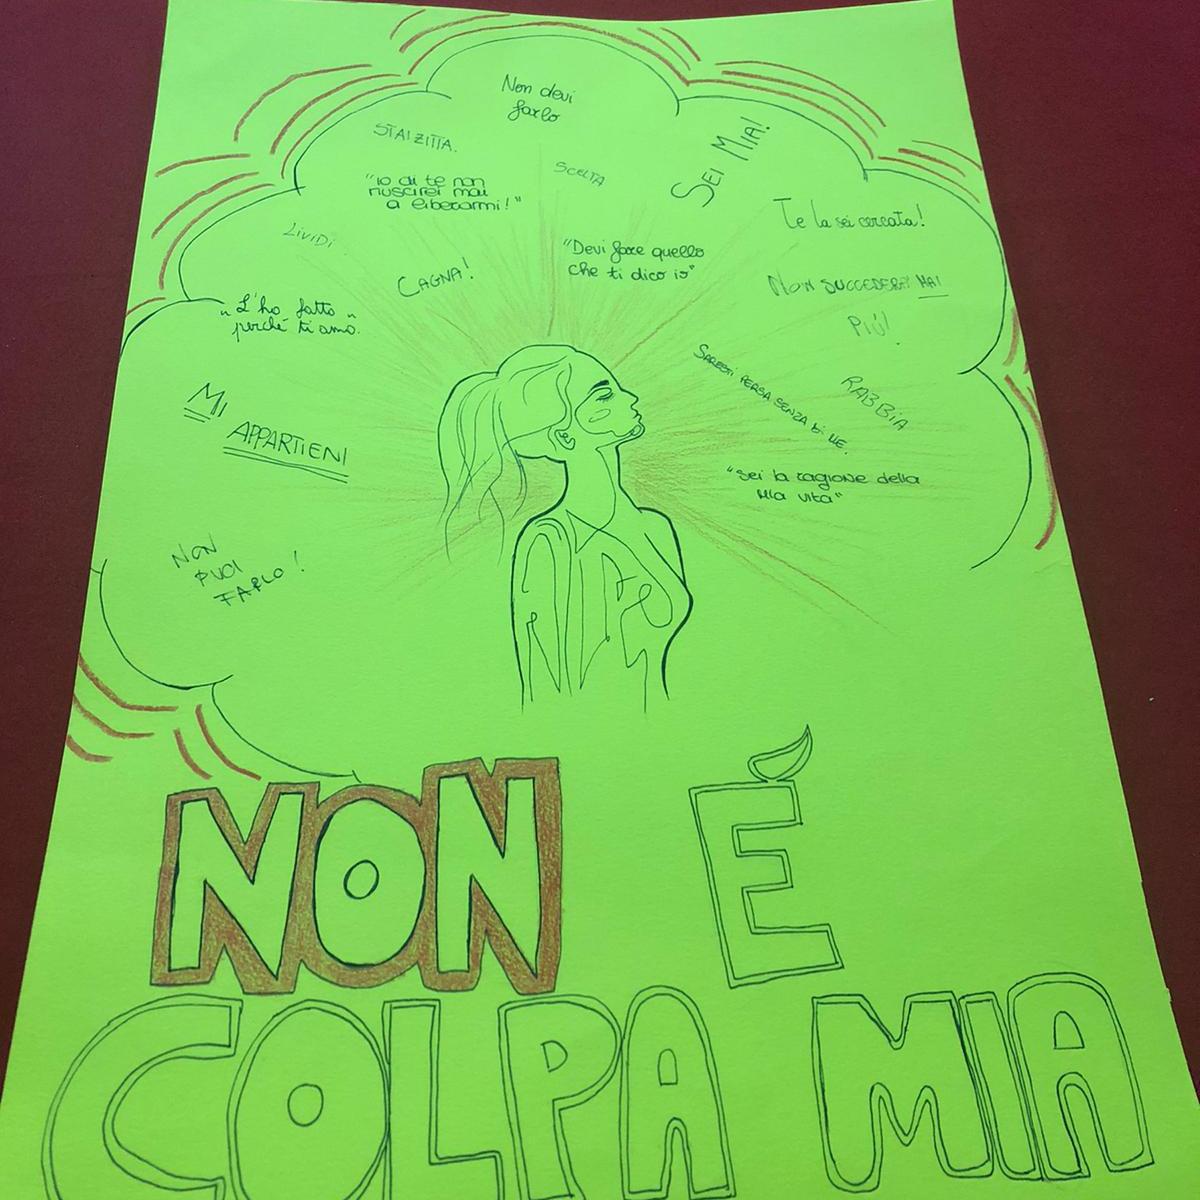 Non devi
farlo
STAI ZITTA.
SEI MIA!
"io di te non
riuscirei mai
a liberarmi!"
SCELTA
Te la sei cercata!
LIVIDI
CAGNA!
"Devi fare quello
che ti dico io"
NON SUCCEDERÀ MAI
PIÚ!
"L'ho fatto
perché ti amo."
SARESTI PERSA SENZA DI ME.
RABBIA
MI
APPARTIENI
"sei la ragione della
mia vita"
NON
PUOI
FARLO!
NON É
COLPA MIA